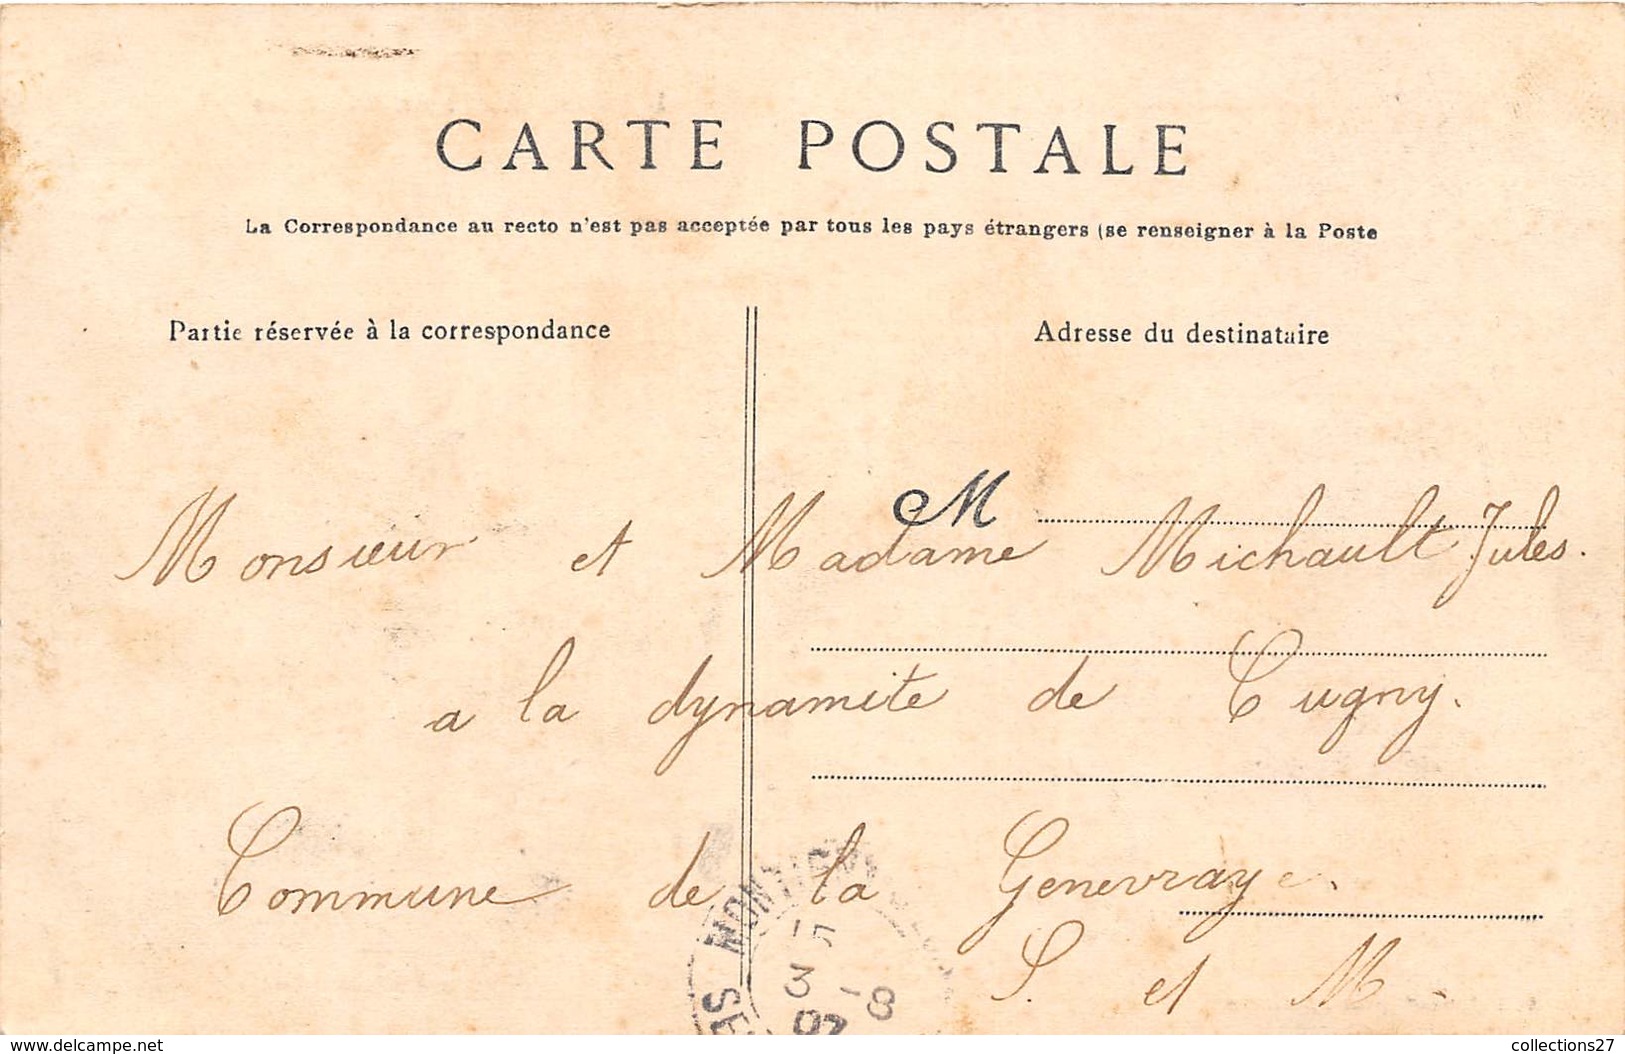 CARTE POSTALE
La Correspondance au recto n'est pas acceptée par tous les pays étrangers (se renseigner à la Poste
Partie réservée à la correspondance
Adresse du destinataire
M
Monsieur et Madame Michault Jules.
a la dynamite de Cugny.
Commune de la Genevraye.
S. et M.
5
3 -8
07
SE
www.delcampe.net
collections27